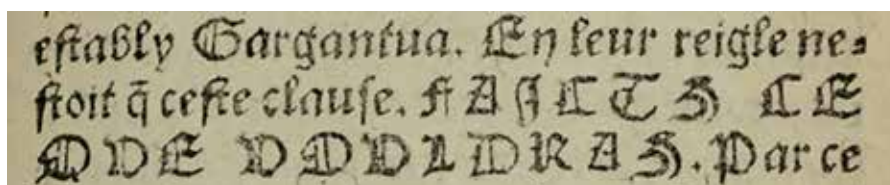 eſtably Gargantua. En leur reigle ne⸗
ſtoit q̃ ceſte clauſe. FAICTZ CE
QVE VOVLDRAS. Par ce